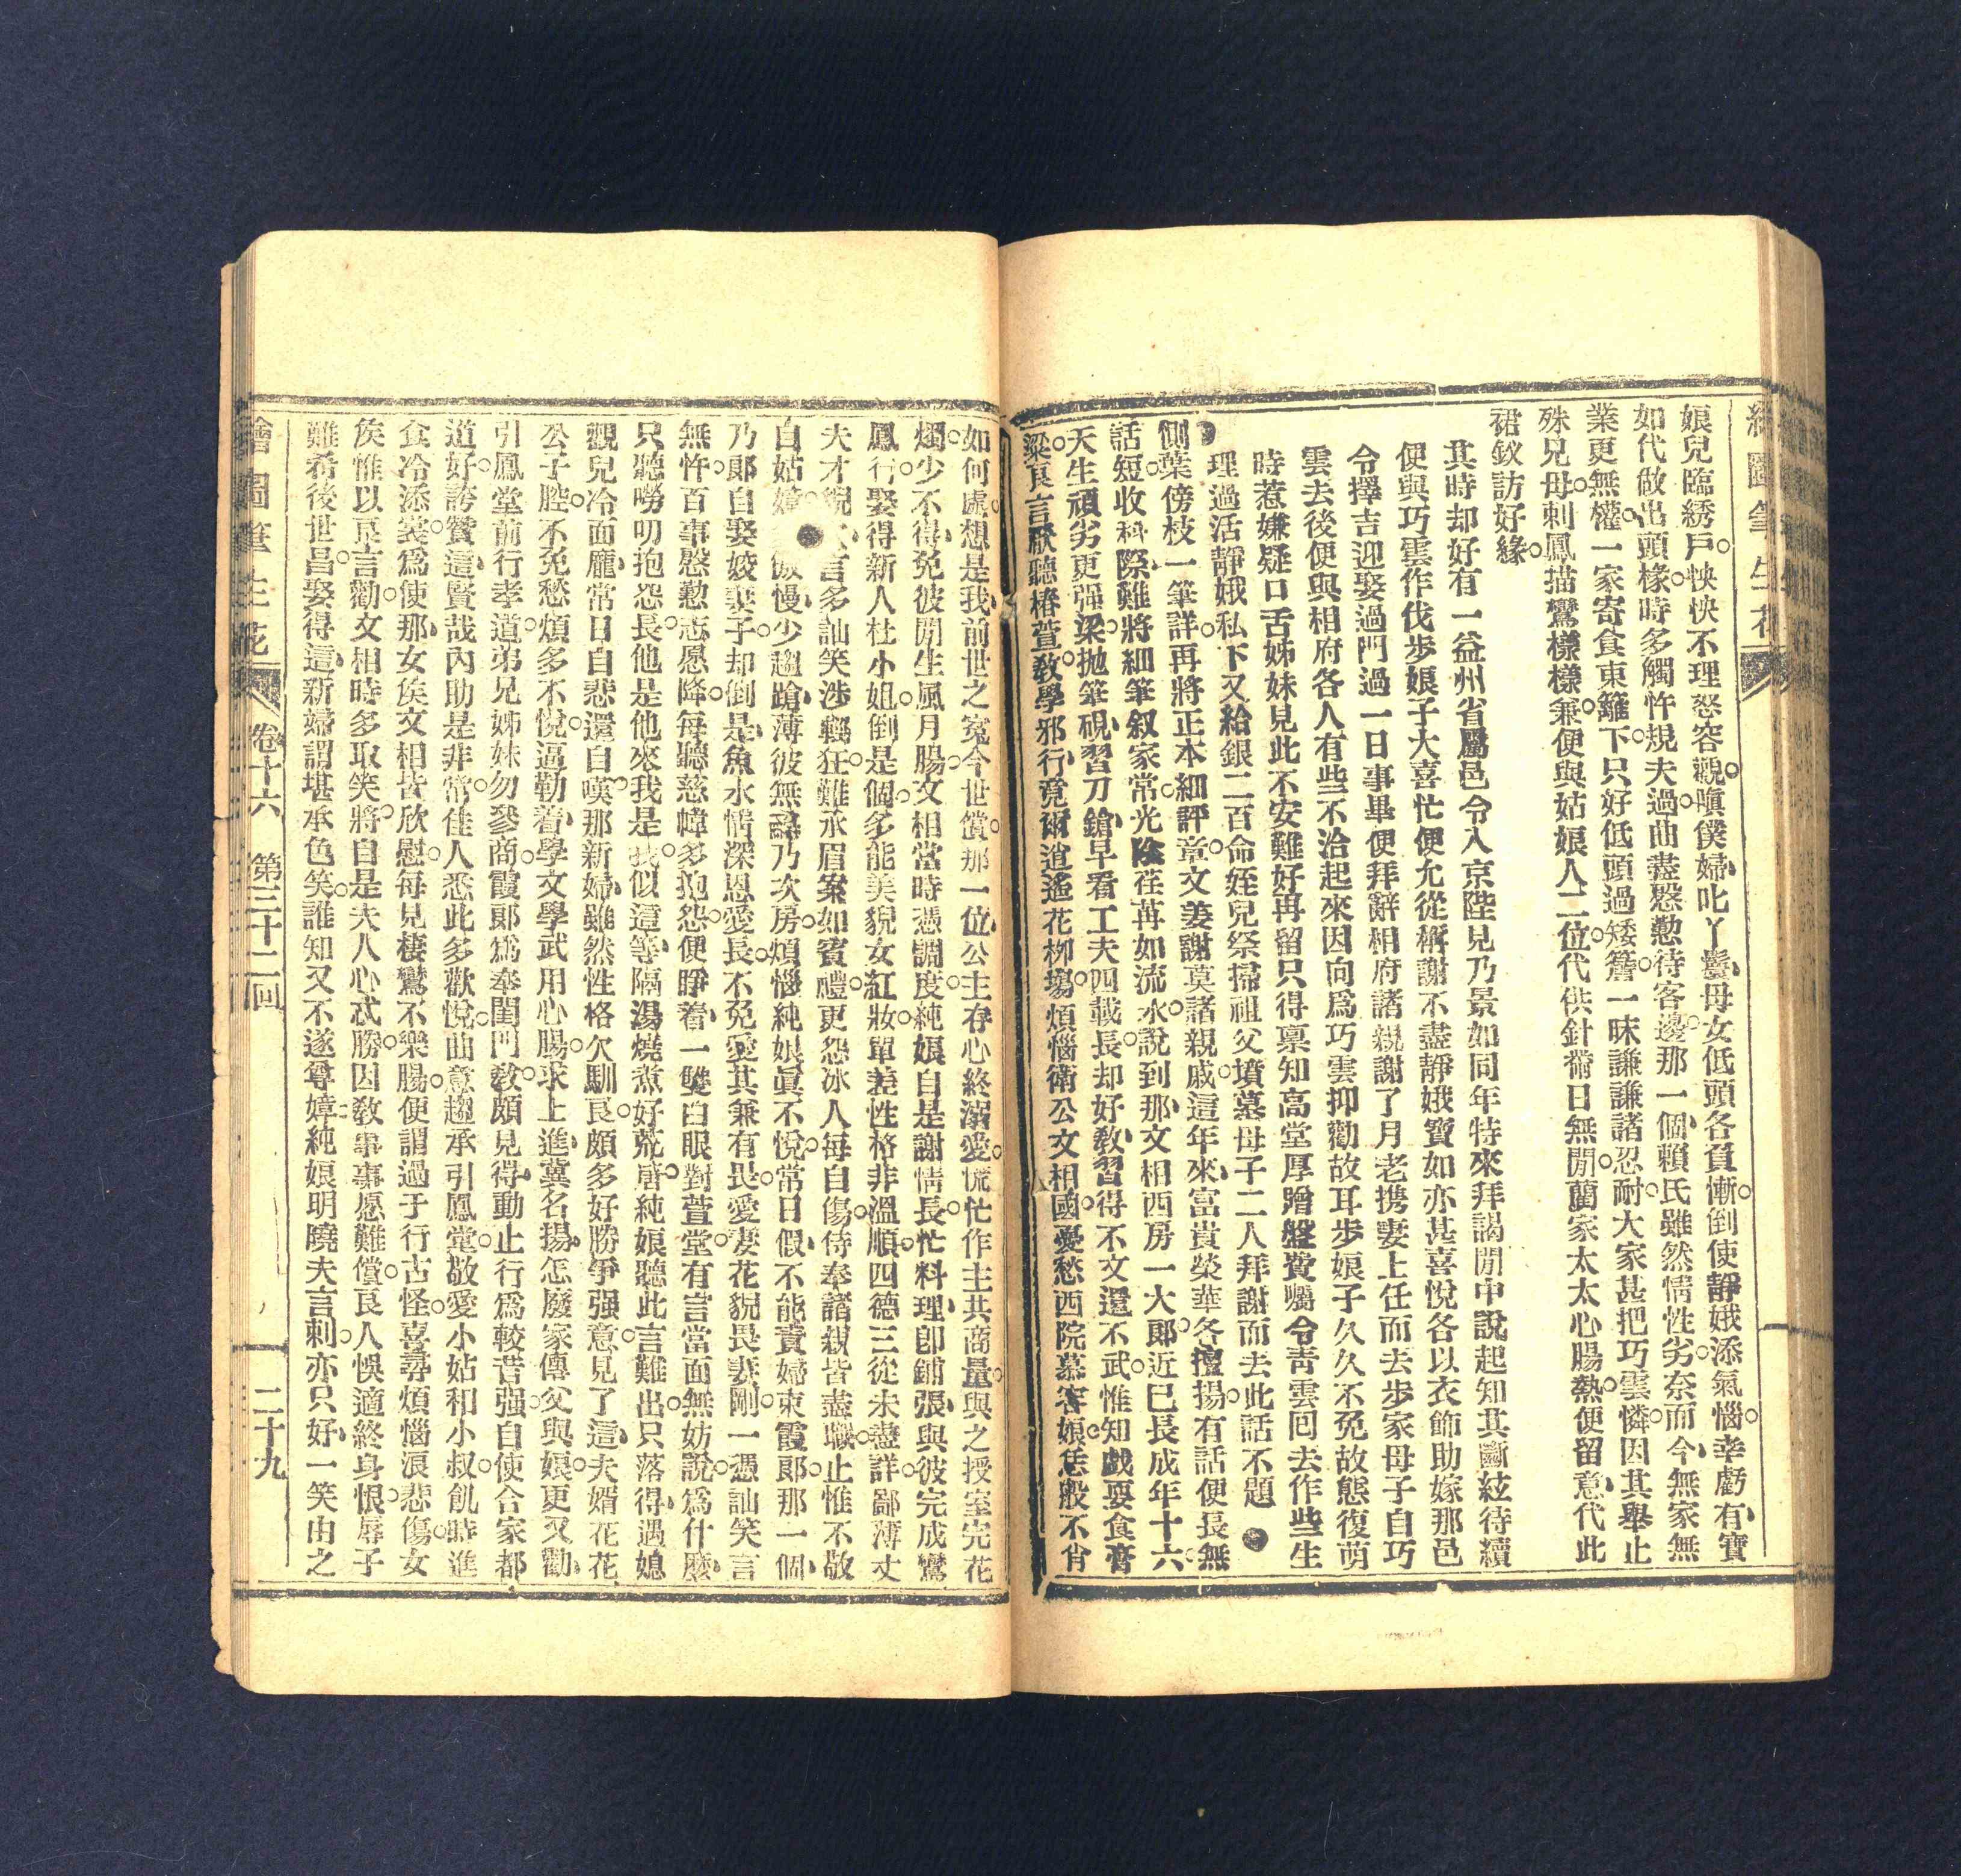 繪圖筆生花
娘兒臨綉戶。怏怏不理怒容觀。嗔僕婦、叱丫鬟、母女低頭各負慚。倒使靜娥添氣惱。幸虧有、寶
如代做出頭椽。時多觸忤規夫過。曲盡慇懃待客邊。那一個、賴氏雖然情性劣。奈而今、無家無
業更無權。一家寄食東籬下。只好低頭過矮簷。一味謙謙諸忍耐。大家甚把巧雲憐。因其舉止
殊兄母。刺鳳描鸞樣樣兼。便與姑娘人二位。代供針黹日無閒。蘭家太太心腸熱。便留意、代此
裙釵訪好緣。
其時却好有一益州省屬邑令入京陛見乃景如同年特來拜謁閒中說起知其斷絃待續
便與巧雲作伐步娘子大喜忙便允從稱謝不盡靜娥寶如亦甚喜悅各以衣飾助嫁那邑
令擇吉迎娶過門過一日事畢便拜辭相府諸親謝了月老携妻上任而去步家母子自巧
雲去後便與相府各人有些不洽起來因向爲巧雲抑勸故耳步娘子久久不免故態復萌
時惹嫌疑口舌姊妹見此不安難好再留只得稟知高堂厚贈盤費囑令靑雲回去作些生
理過活靜娥私下又給銀二百命姪兒祭掃祖父墳墓母子二人拜謝而去此話不題●
側葉傍枝一筆詳。再將正本細評章。文姜謝莫諸親戚。這年來、富貴榮華各擅揚。有話便長無
話短。收科際、難將細筆叙家常。光陰荏苒如流水。說到那、文相西房一大郞。近已長成年十六。
天生頑劣更强梁。拋筆硯、習刀鎗、早看工夫四載長。却好教、習得不文還不武。惟知戲耍食膏
粱。良言厭聽椿萱敎。學邪行、竟爾逍遙花柳塲。煩惱衛公文相國。憂愁西院慕容娘。恁般不肖
如何處。想是我、前世之寃今世償。那一位、公主存心終溺愛。慌忙作主共商量。與之授室完花
燭。少不得、免彼閒生風月腸。文相當時憑調度。純娘自是謝情長。忙料理、卽鋪張、與彼完成鸞
鳳行。娶得新人杜小姐。倒是個、多能美貌女紅妝。單差性格非溫順。四德三從未盡詳。鄙薄丈
夫才貌言多訕笑涉輕狂。難承眉案如賓禮。更怨冰人每自傷。侍奉諸親皆盡職。止惟不敬
白姑嫜傲慢、少趨蹌、薄彼無尋乃次房。煩惱純娘眞不悅。常日假、不能責婦束霞郞。那一個、
乃郞自娶姣妻子。却倒是、魚水情深恩愛長。不免愛其兼有畏。愛凄花貌畏妻剛。一憑訕笑言
無忤。百事慇懃志愿降。每聽慈幃多抱怨。便睜着、一雙白眼對萱堂。有言當面無妨說。爲什麼、
只聽嘮叨抱怨長。他是他來我是我。似這等、隔湯燒煮好荒唐。純娘聽此言難出。只落得、遇媳
觀兒冷面龐。常日自悲還自嘆。那新婦、雖然性格欠馴良。頗多好勝爭强意。見了這、夫婿花花
公子腔。不免愁煩多不悅。逼勒着、學文學武用心腸。求上進、冀名揚、怎廢家傳父與娘。更又勸、
引鳳堂前行孝道。弟兄姊妹勿參商。霞郞爲奉閨門敎。頗見得、動止行爲較昔强。自使合家都
道好。誇贊這、賢哉內助是非常。佳人悉此多歡悅。曲意趨承引鳳堂。敬愛小姑和小叔。飢時進
食冷添裳。爲使那、女侯文相皆欣慰。每見棲鸞不樂腸。便謂過于行古怪。喜尋煩惱浪悲傷。女
侯惟以良言勸。文相時多取笑將。自是夫人心忒勝。因敎事事愿難償。良人悞適終身恨。辱子
難希後世昌。娶得這、新婦謂堪承色笑。誰知又、不遂尊嫜純娘明曉夫言刺。亦只好、一笑由之
繪圖筆生花 卷十六 第三十二回 二十九